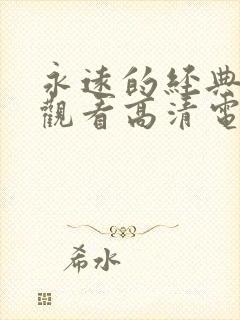 永遠的經典
觀看高清電
希水